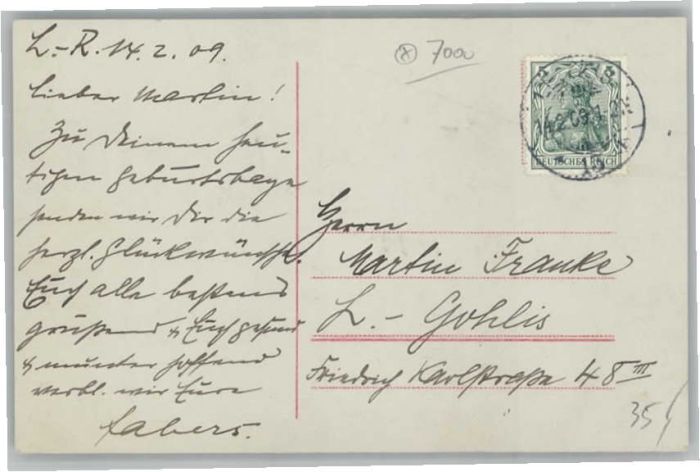 L.-R. 14.2.09.
Lieber Martin!
Zu Deinem heu-
tigen Geburtstage
senden wir Dir die
herzl. Glückwünsche.
Euch alle bestens
grüßend & Euch gesund
& munter hoffend
verbl. wir Eure
Fabers.
7000
DEUTSCHES REICH
Herrn
Martin Franke
L.- Gohlis
Friedrich Karlstraße 48 III
35